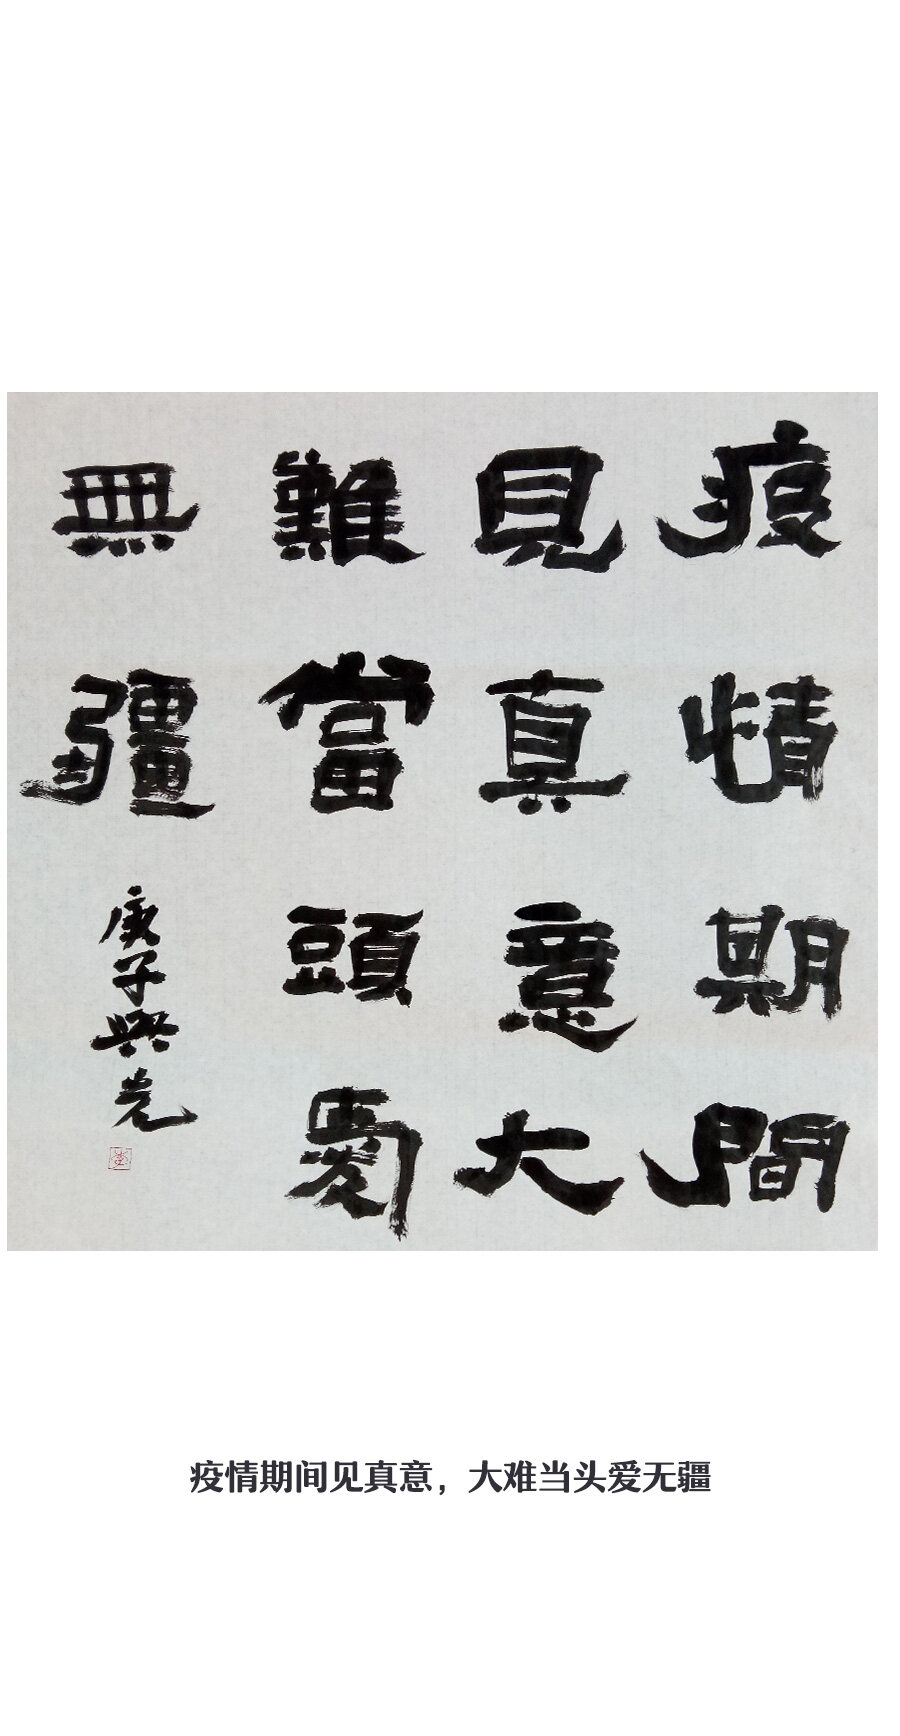 疫情期間
見真意大
難當頭愛
無疆
庚子興光
疫情期间见真意，大难当头爱无疆